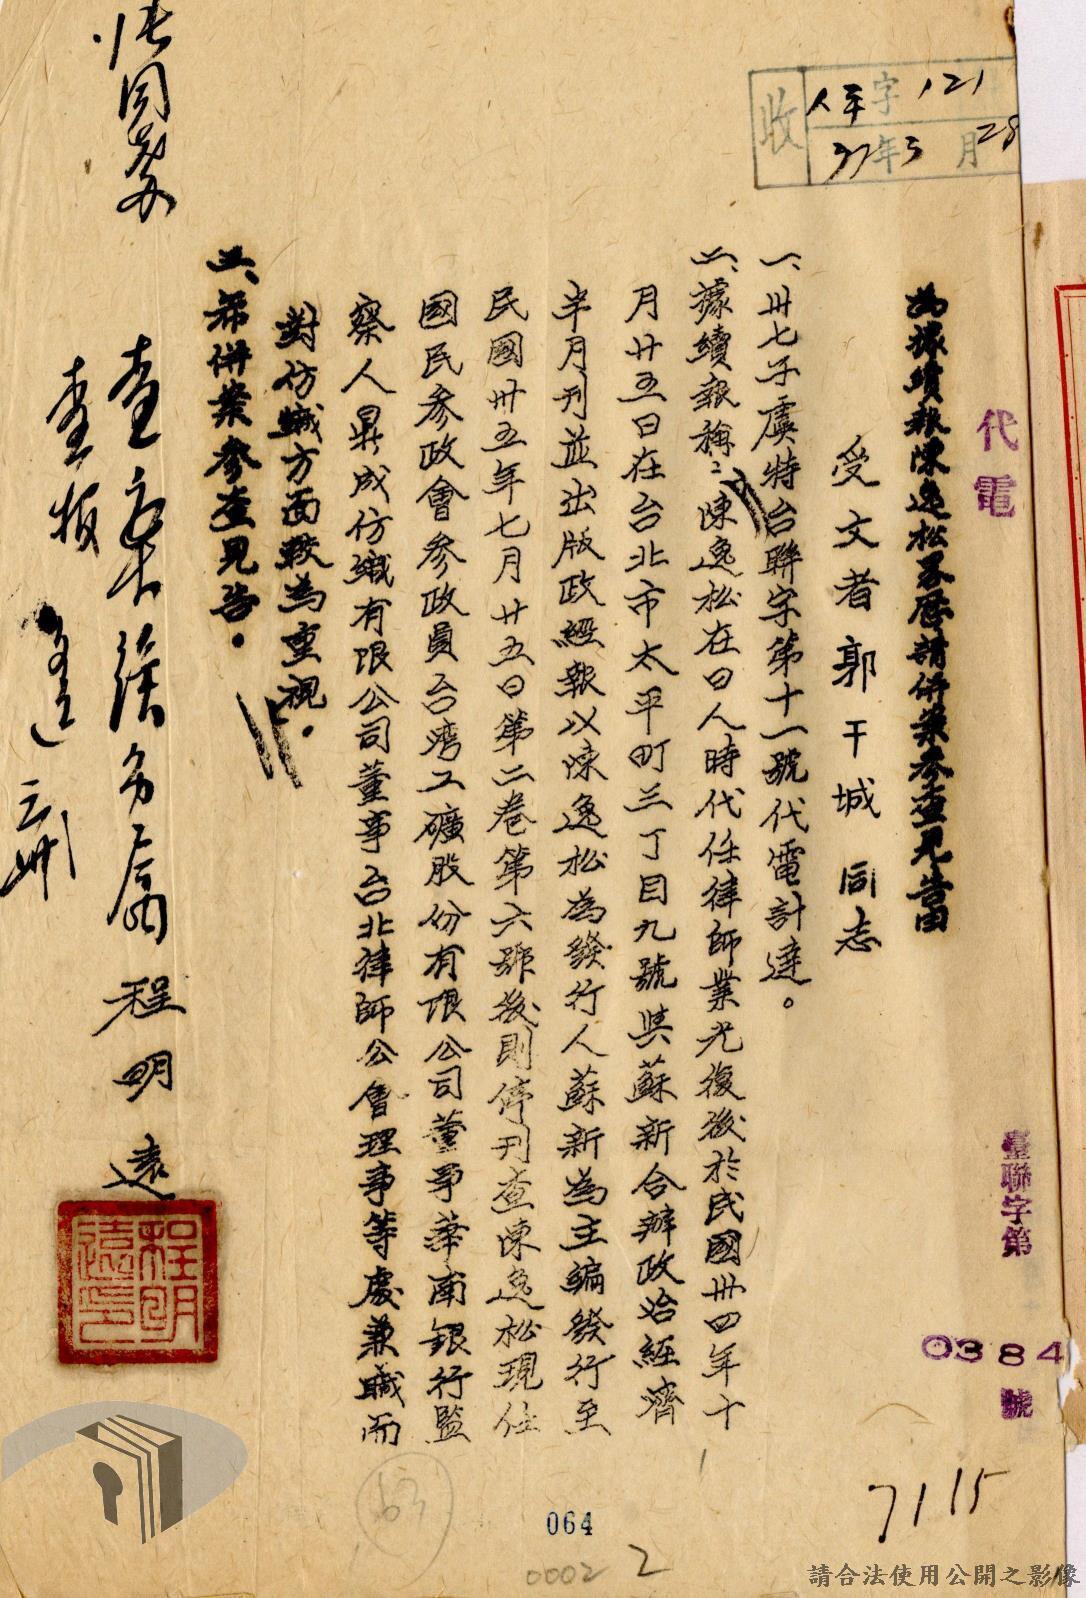 收
人平字 121
37年3月28
代電
臺聯字第
0384
號
為據續報陳逸松學歷請併案參查見告由
受文者郭干城 同志
一、卅七子虞特台聯字第十一號代電計達。
二、據續報稱：陳逸松在日人時代任律師業光復後於民國卅四年十
月廿五日在台北市太平町三丁目九號與蘇新合辦政治經濟
半月刊並出版政經報以陳逸松為發行人蘇新為主編發行至
民國卅五年七月廿五日第二卷第六號後則停刊查陳逸松現任
國民參政會參政員台灣工礦股份有限公司董事華南銀行監
察人鼎成仿緎有限公司董事台北律師公會理事等處兼職而
對仿緎方面較為重視。
三、希併案參查見告。
程明遠
程明遠印
7115
63
064
0002 2
請合法使用公開之影像